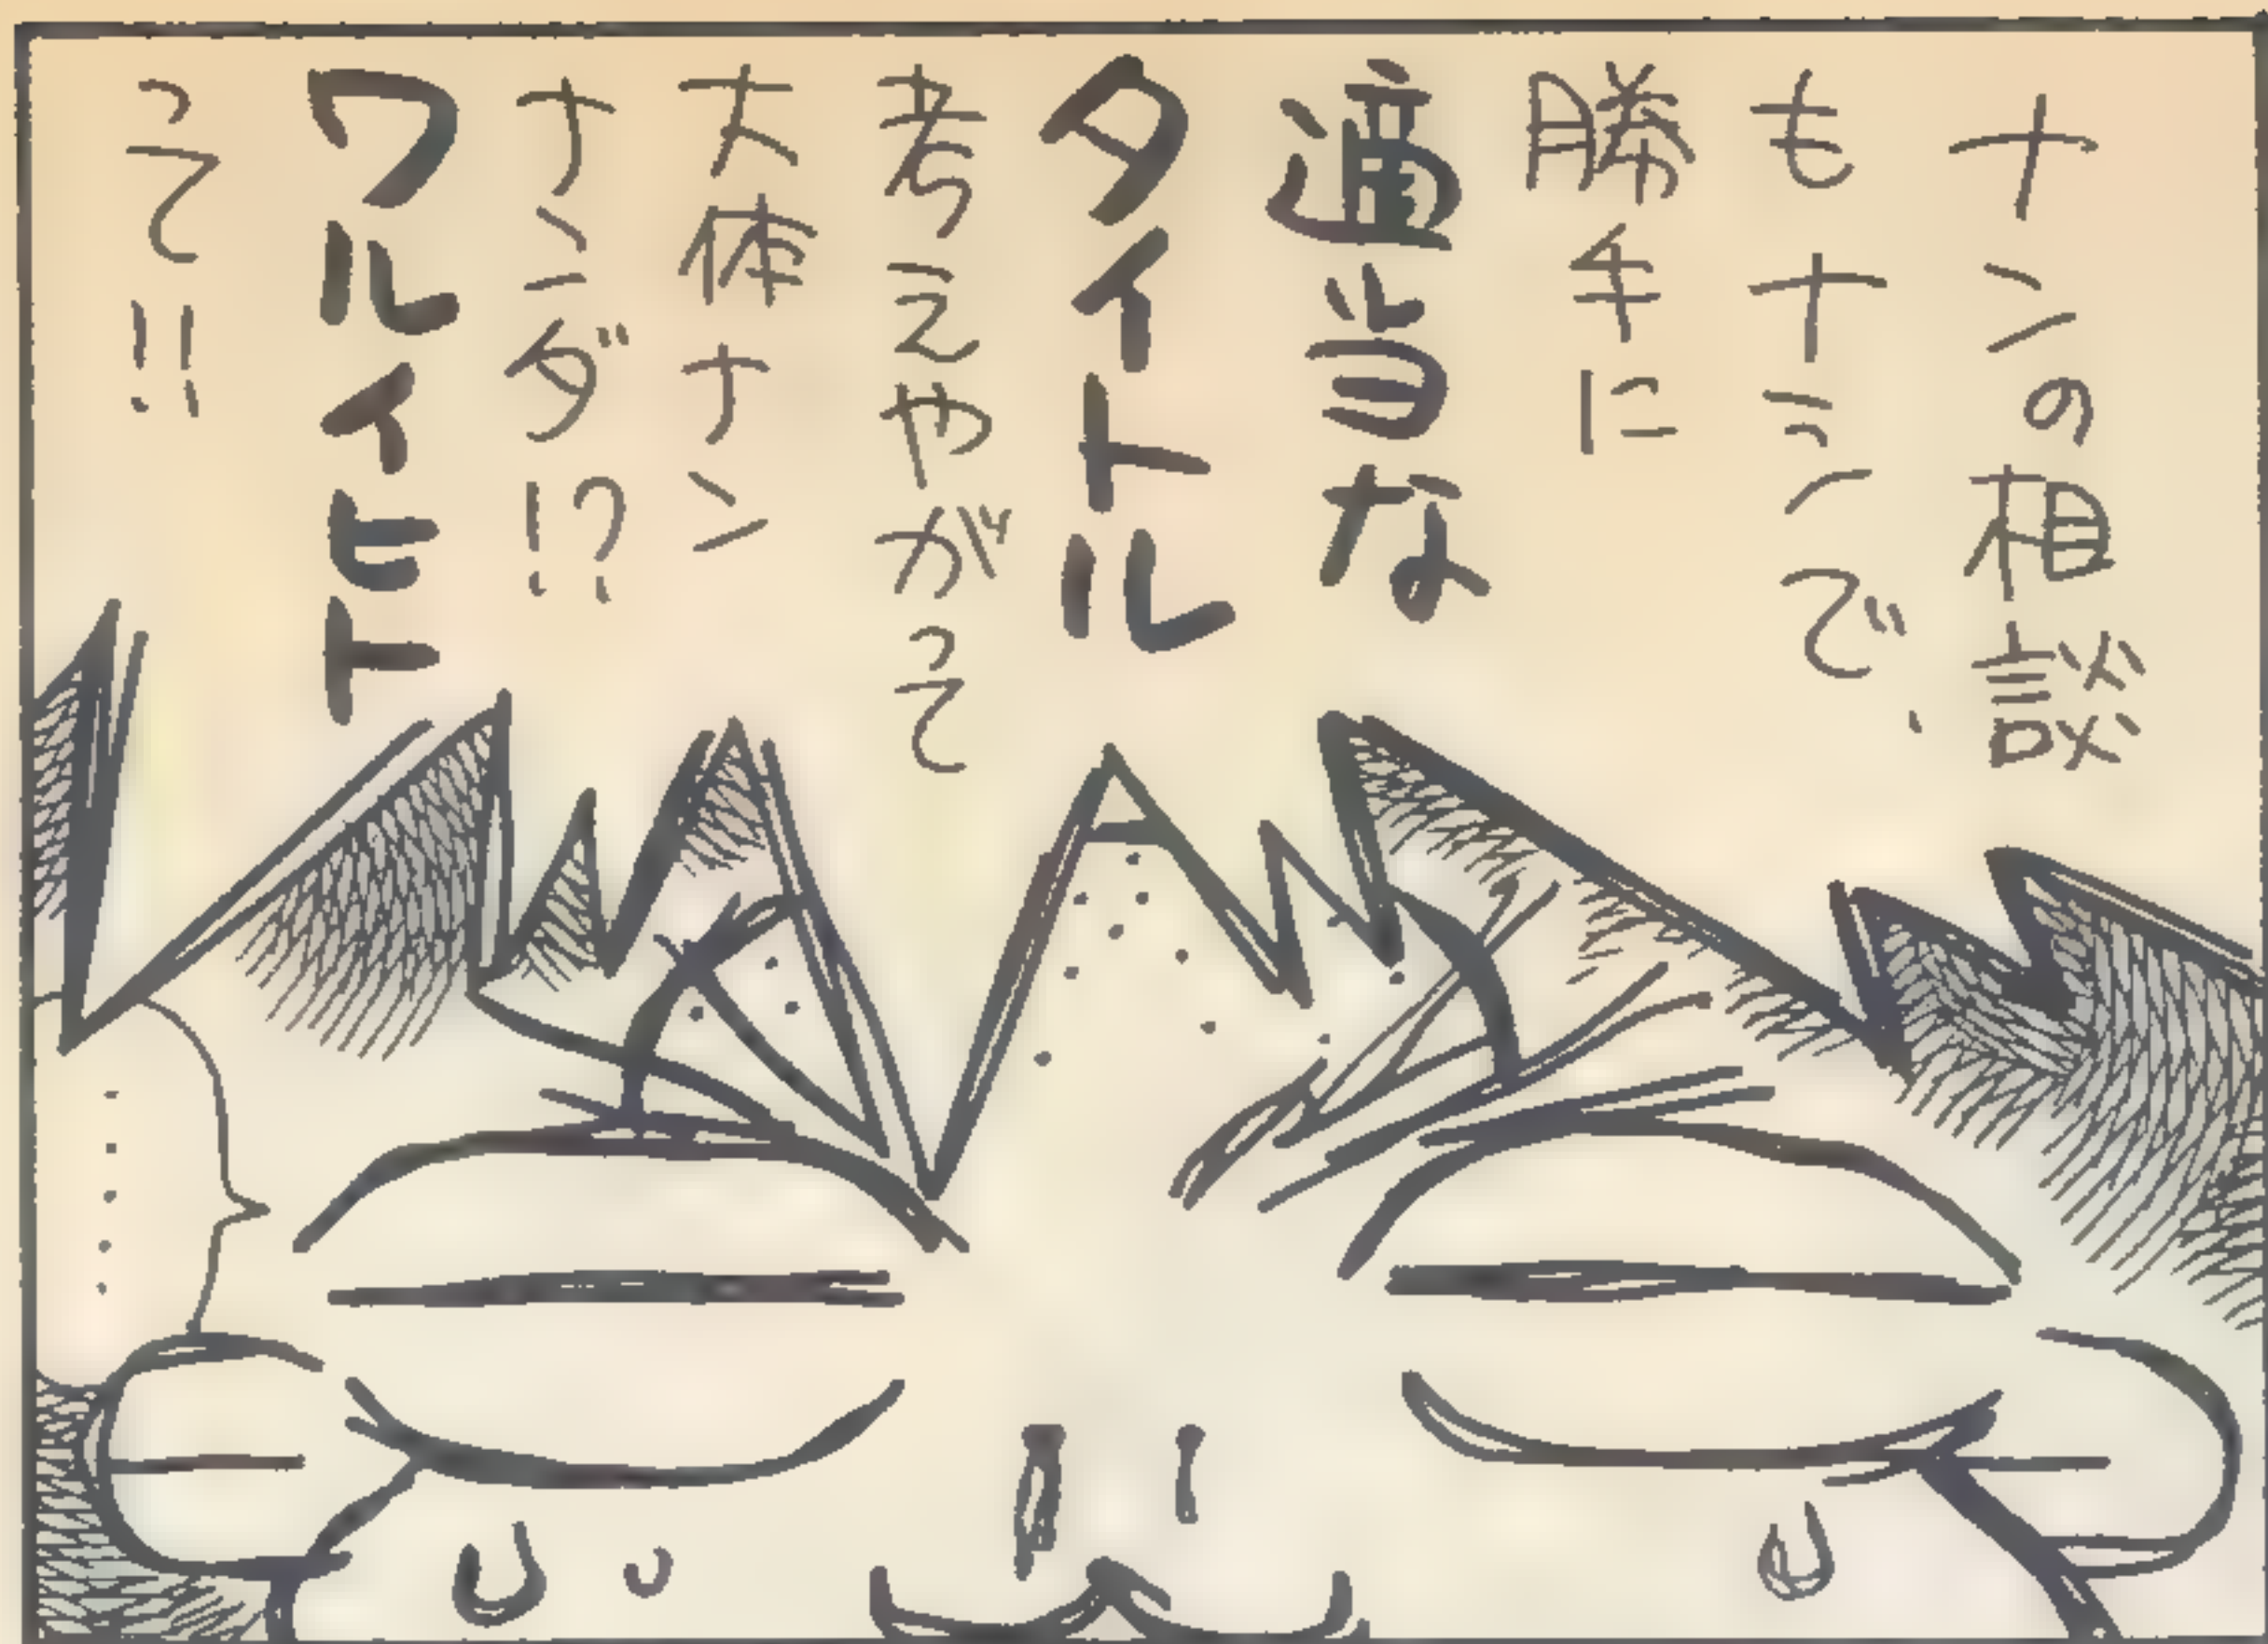 ナンの相談
もナシで、
勝手に
適当な
タイトル
考えやがって
大体ナン
ナンダ!?
ワルイヒト
って!!
・・・・・